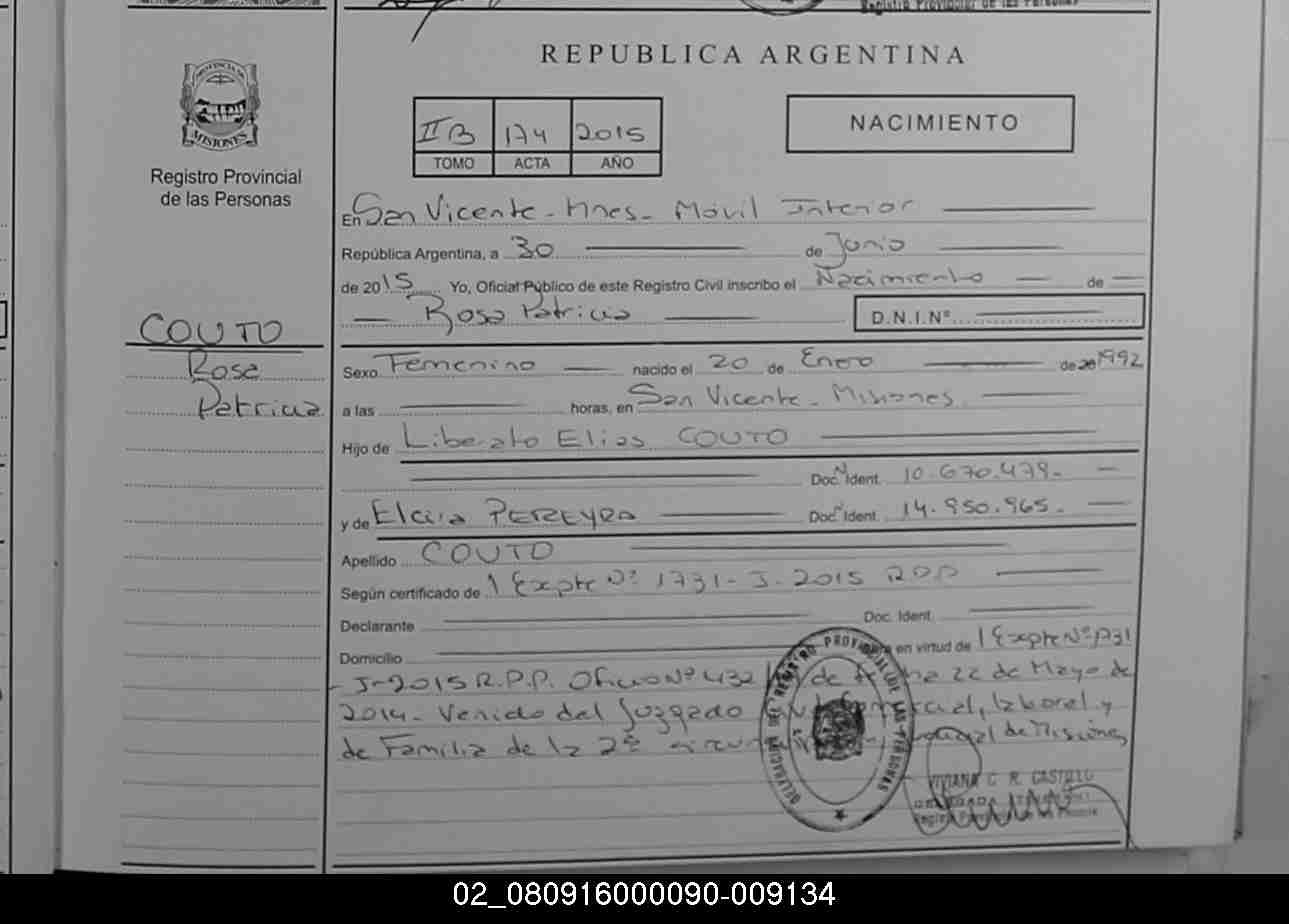 Registro Provincial de las Personas
REPUBLICA ARGENTINA
PROVINCIA DE
MISIONES
Registro Provincial
de las Personas
II B 174 2015
TOMO ACTA AÑO
NACIMIENTO
En San Vicente - Mnes - Móvil Interior
República Argentina, a 30 de Junio
de 2015 Yo, Oficial Público de este Registro Civil inscribo el Nacimiento de
Rosa Patricia D.N.I.Nº
COUTO
Rosa
Patricia
Sexo Femenino nacido el 20 de Enero de 20 1992
a las horas, en San Vicente - Misiones
Hijo de Liberato Elias COUTO
Doc. Ident. 10.670.479-
y de PEREYRA Doc. Ident. 14.950.965.
Apellido COUTO
Según certificado de Expte Nº 1731- J- 2015
Declarante Doc. Ident.
Domicilio en virtud de Expte Nº 1731
J-2015 R.P.P. Oficio Nº 432 de 22 de Mayo de
2014- Venido del Juzgado laboral y
de Familia de la 2º de Misiones
DELEGACION DEL REGISTRO PROVINCIAL DE LAS PERSONAS
VIVIANA C. R. CASTILLO
DELEGADA TITULAR
Registro Provincial de las Personas
02_080916000090-009134